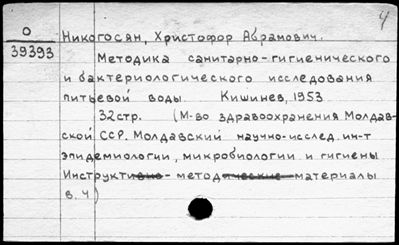 4
О
39393
Никогосян, Христофор Абрамович.
Методика санитарно-гигиенического
и бактериологического исследования
питьевой воды. Кишинев, 1953
32стр. (М-во здравоохранения Молдав-
ской ССР. Молдавский научно-исслед. ин-т
эпидемиологии, микробиологии и гигиены
Инструктивно-методические материалы
в. 4)